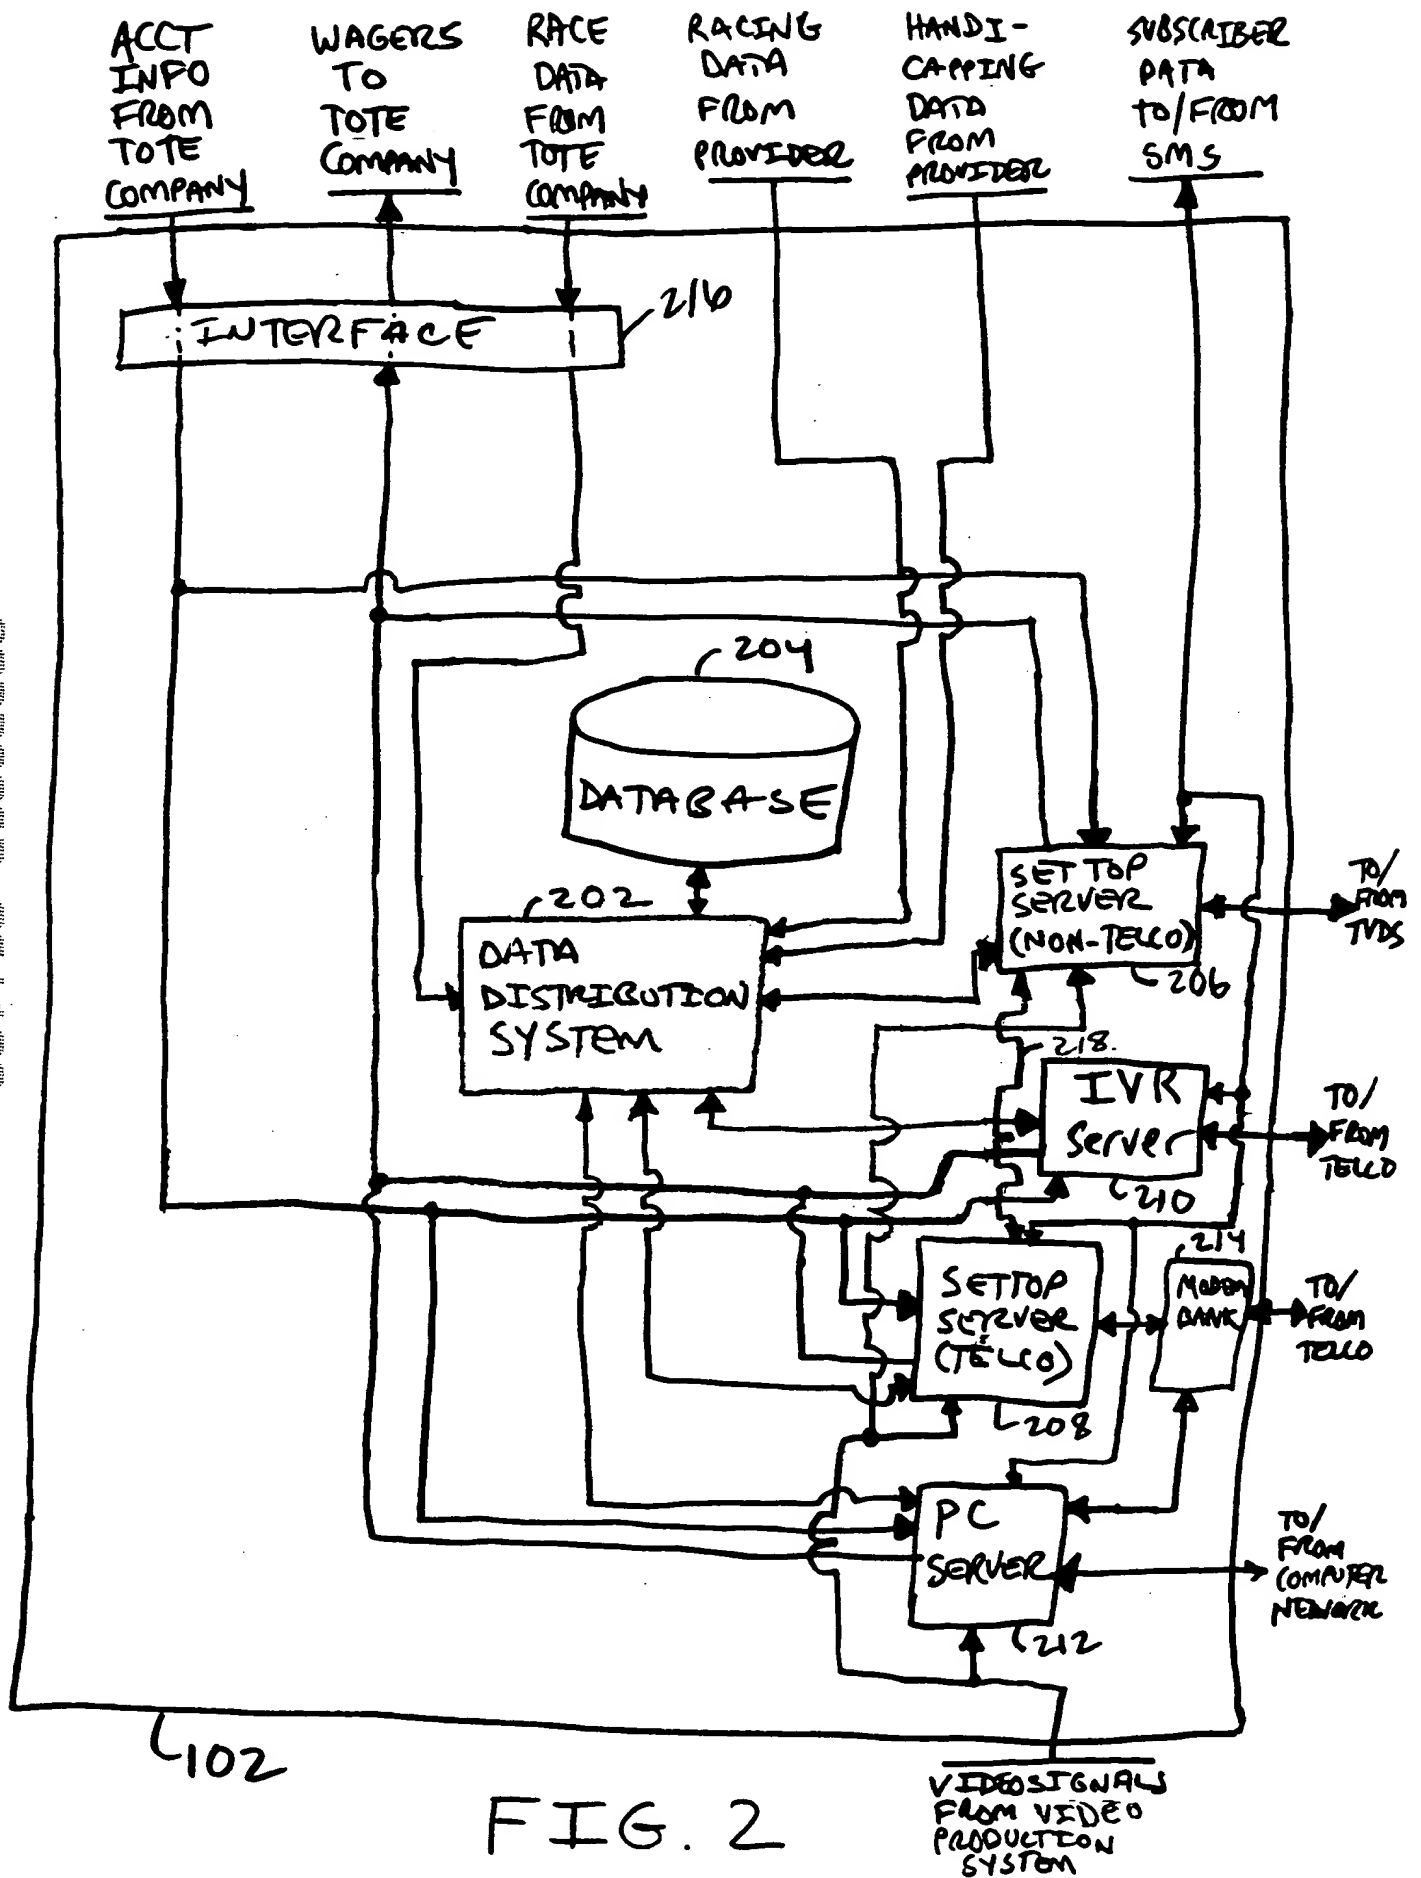 ACCT
INFO
FROM
TOTE
COMPANY
WAGERS
TO
TOTE
COMPANY
RACE
DATA
FROM
TOTE
COMPANY
RACING
DATA
FROM
PROVIDER
HANDI-
CAPPING
DATA
FROM
PROVIDER
SUBSCRIBER
DATA
TO/FROM
SMS
INTERFACE
216
204
DATABASE
202
DATA
DISTRIBUTION
SYSTEM
SET TOP
SERVER
(NON-TELCO)
206
TO/
FROM
TVDS
218.
IVR
Server
210
TO/
FROM
TELCO
214
SETTOP
SERVER
(TELCO)
208
MODEM
BANK
TO/
FROM
TELCO
PC
SERVER
212
TO/
FROM
COMPUTER
NETWORK
102
VIDEO SIGNALS
FROM VIDEO
PRODUCTION
SYSTEM
FIG. 2